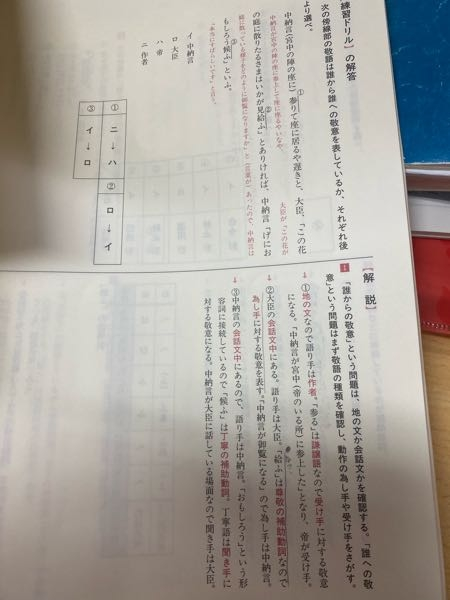 【練習ドリル】の解答
次の傍線部の敬語は誰から誰への敬意を表しているか、それぞれ後
より選べ。
中納言(宮中の陣の座に)参りて座に居るや遅きと、大臣、「この花
①
中納言が宮中の陣の座に参上して座に座るやいなや、
大臣が「この花が
の庭に散りたるさまはいかが見給ふ」とありければ、中納言「げにお
②
庭に散っている様子をどのように御覧になりますか」と(言葉が)あったので、中納言は
もしろう候ふ」といふ。
③
「本当にすばらしいです」と言う。
イ 中納言
ロ 大臣
ハ 帝
ニ 作者
① ニ→ハ
② ロ→イ
③ イ→ロ
【解説】
1 「誰からの敬意」という問題は、地の文か会話文かを確認する。「誰への敬
意」という問題はまず敬語の種類を確認し、動作の為し手や受け手をさがす。
→①地の文なので語り手は作者。「参る」は謙譲語なので受け手に対する敬意
になる。「中納言が宮中(帝のいる所)に参上した」となり、帝が受け手。
→②大臣の会話文中にある。語り手は大臣。「給ふ」は尊敬の補助動詞なので
為し手に対する敬意を表す。「中納言が御覧になる」ので為し手は中納言。
→③中納言の会話文中にあるので、語り手は中納言。「おもしろう」という形
容詞に接続しているので「候ふ」は丁寧の補助動詞。丁寧語は聞き手に
対する敬意になる。中納言が大臣に話している場面なので聞き手は大臣。